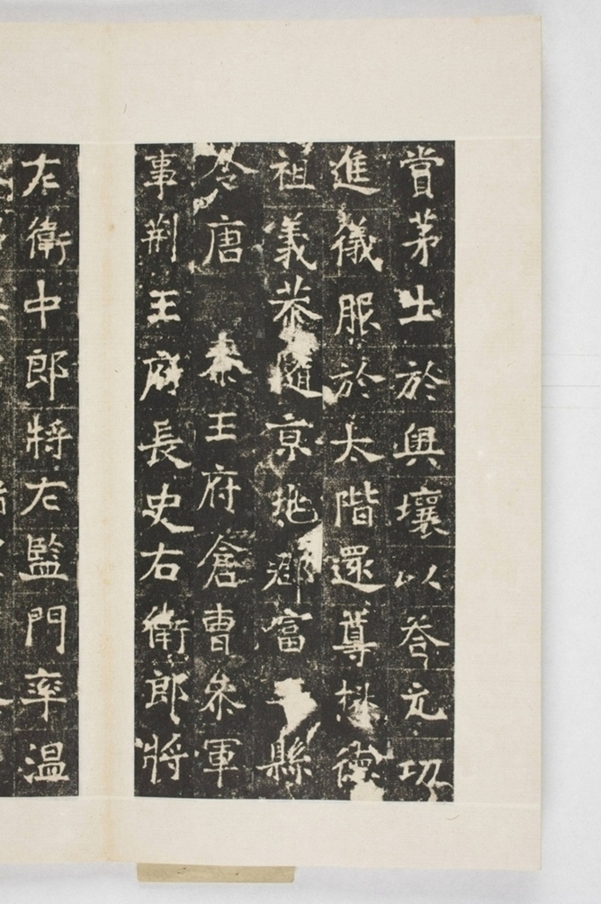 賞茅土於奧壤以荅元功
進儀服於太階還尊楙德
祖義恭隨京兆郡富縣
令唐 秦王府倉曹叅軍
事荆王府長史右衛郎將
左衛中郎將左監門率温